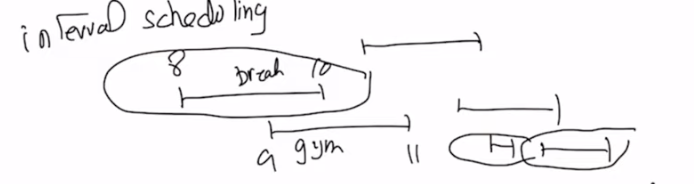 interval scheduling
8 break 10
9 gym 11